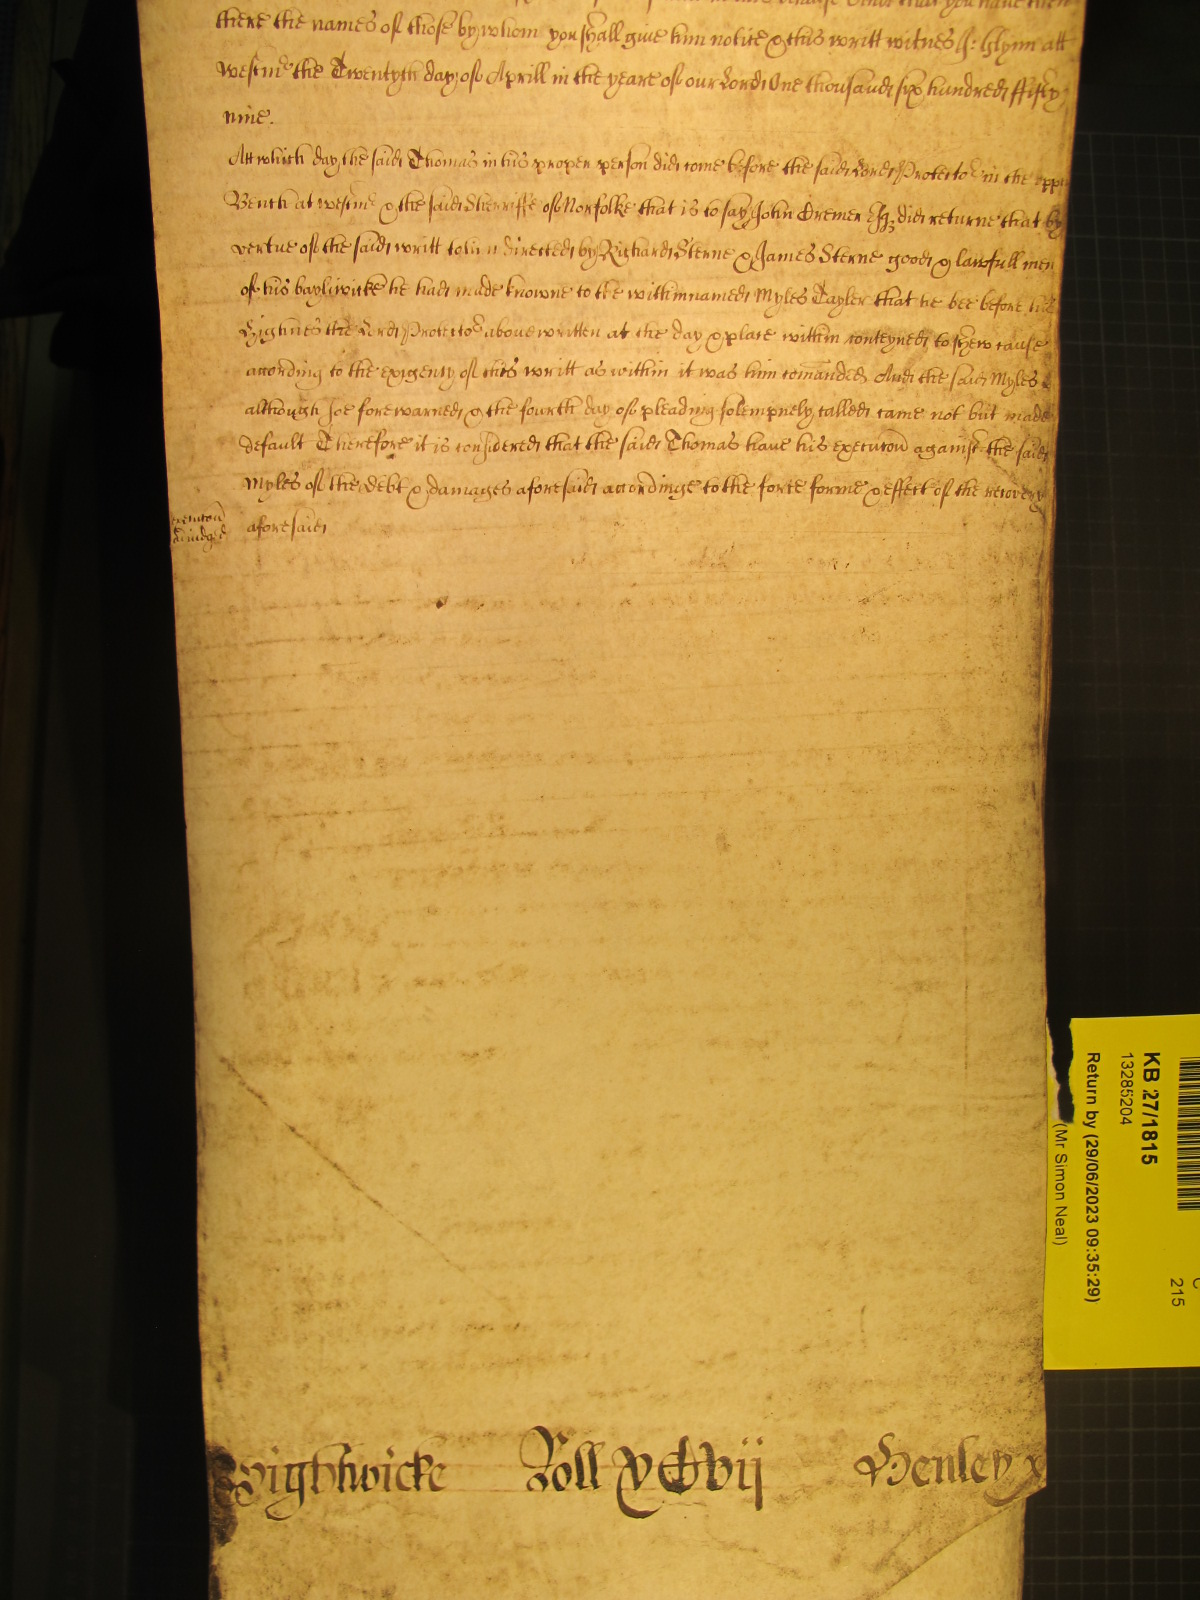 that you have then
there the names of those by whom you shall give him notice & this writt witnes J: Glynn att
Westmr the Twentyth day of Aprill in the yeare of our Lord One thousand six hundred fifty
nine.
Att which day the said Thomas in his proper person did come before the said Lord Protector in the upp
Bench at Westmr & the said Sherriffe of Norfolke that is to say John Cremer Esqr did returne that by
vertue of the said writt to him directed by Richard Sterne & James Sterne good & lawfull men
of his bayliwicke he had made knowne to the within named Myles Tayler that he bee before his
Highnes the Lord Protector above written at the day & place within conteyned to shew cause
according to the exigency of this writt as within it was him comanded And the said Myles
although soe forewarned & the fourth day of pleading solempnely called came not but made
default Therefore it is considered that the said Thomas have his execucon against the said
Myles of the debt & damages aforesaid accordinge to the force forme & effect of the recovery
execucon
adiudged
aforesaid
Wightwicke Roll xCvij Henley
KB 27/1815
13285204
Return by (29/06/2023 09:35:29)
(Mr Simon Neal)
215